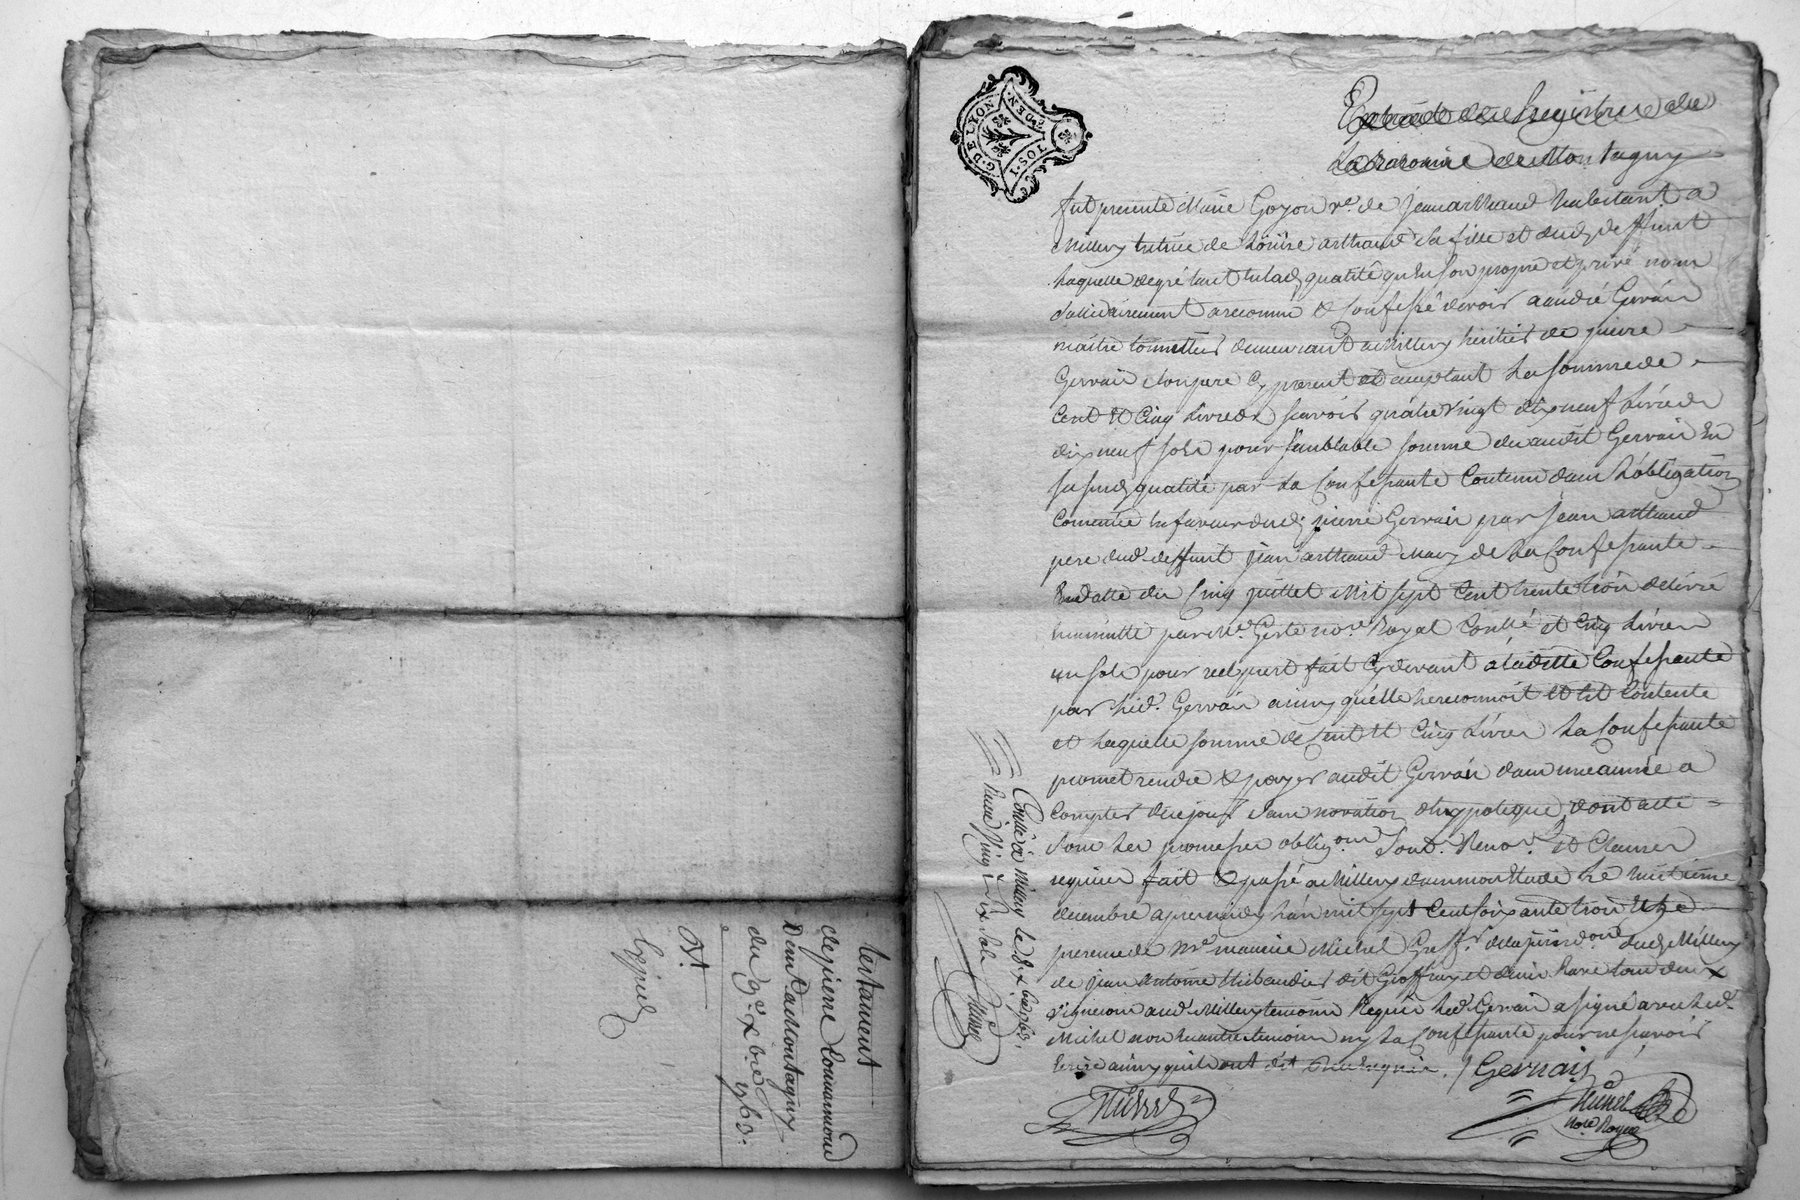 testament
de pierre Commarmond
Dain a Montagny
du 9e xbre 1763.
Ext
G. DE LYON
2.S DEN.
TOS. I
Extrait des Registres de
La Baronnie de Montagny
fut presente Marie Goyon ve. de Jean arthaud habitant a
Millery tutrice de Louise arthaud sa fille et dud. deffunt
Laquelle de gré tant en lad. qualité qu'en son propre et privé nom
solidairement a reconnu & confessé devoir a andré Gervais
maitre tonnellier demeurant a Millery heritier de pierre
Gervais son pere cy present et acceptant La somme de
Cent et Cinq Livres scavoir quatre vingt dix neuf Livres
dix neuf sols pour semblable somme deue audit Gervais en
sa susd. qualité par La Confessante Contenue dans L'obligation
Consentie en faveur dud. pierre Gervais par Jean arthaud
pere dud. deffunt jean arthaud Mary de La Confessante
En datte du Cinq juillet Mil sept Cent trente trois delivré
en minutte par Me. Geste nore. Royal Conllé et Cinq Livres
un sols pour reel prest fait Cy devant a laditte Confessante
par Led. Gervais ainsy qu'elle le reconnoit et s'et Contente
et Laquelle somme de Cent et Cinq Livres La Confessante
promet rendre & payer audit Gervais dans une année a
Compter de ce jour sans novation d'hypoteque, dont acte
sous Les promesses obligons. Soub. Renons. et Clauses
requises fait & passé a Millery dans mon Etude Le huitieme
decembre apres midy L'an mil sept Cent soixante trois En
presence de Me maurice Michel Greff. de la jurisdon. dud. Millery
de jean antoine Thibaudier dit Geoffray et denis Rave tous deux
vignerons aud. Millery temoins Requis Led. Gervais a signé avec Led.
Michel non L'autre temoin ny La Confessante pour ne scavoir
Ecrire ainsy qu'ils ont dit Enquis & requis. / Gervais
Michel
nore Royal
Conllé à Millery le 8 xbre 1763.
Reçu Vingt Six Sols